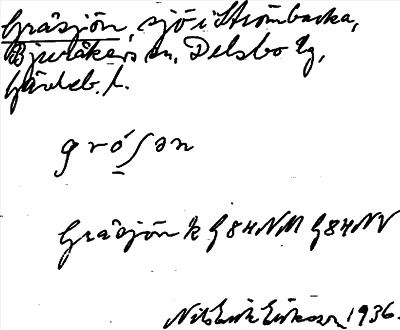 Gråsjön, sjö i Strömbacka,
Bjuråkers sn, Delsbo tg,
Gävleb. l.
gró̱ʃən
Gråsjön k G84NM G84NV
Nils Erik Eriksson 1936.